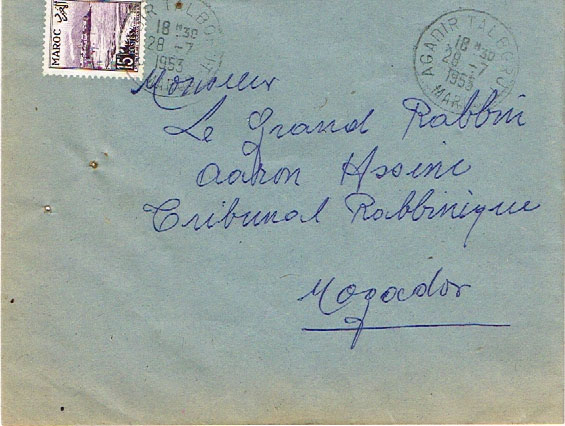 MAROC
15F
AGADIR TALBORDJ
18 H30
28 -7
1953
MAROC
Monsieur
Le Grand Rabbin
Aaron Assine
Tribunal Rabbinique
Mogador